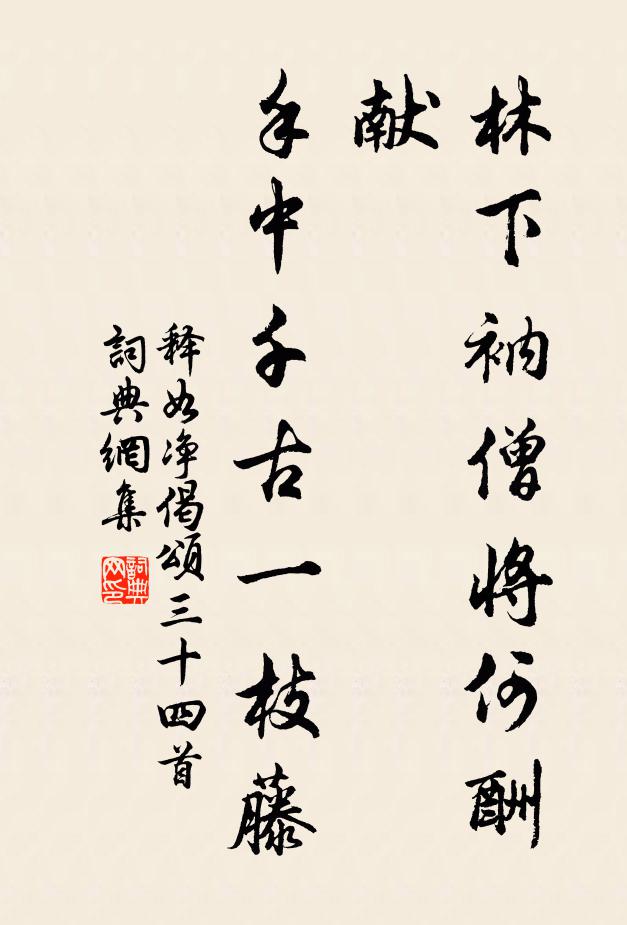 林下衲僧將何酬
献
手中千古一枝藤
释如净偈頌三十四首
詞典網集
詞典网印